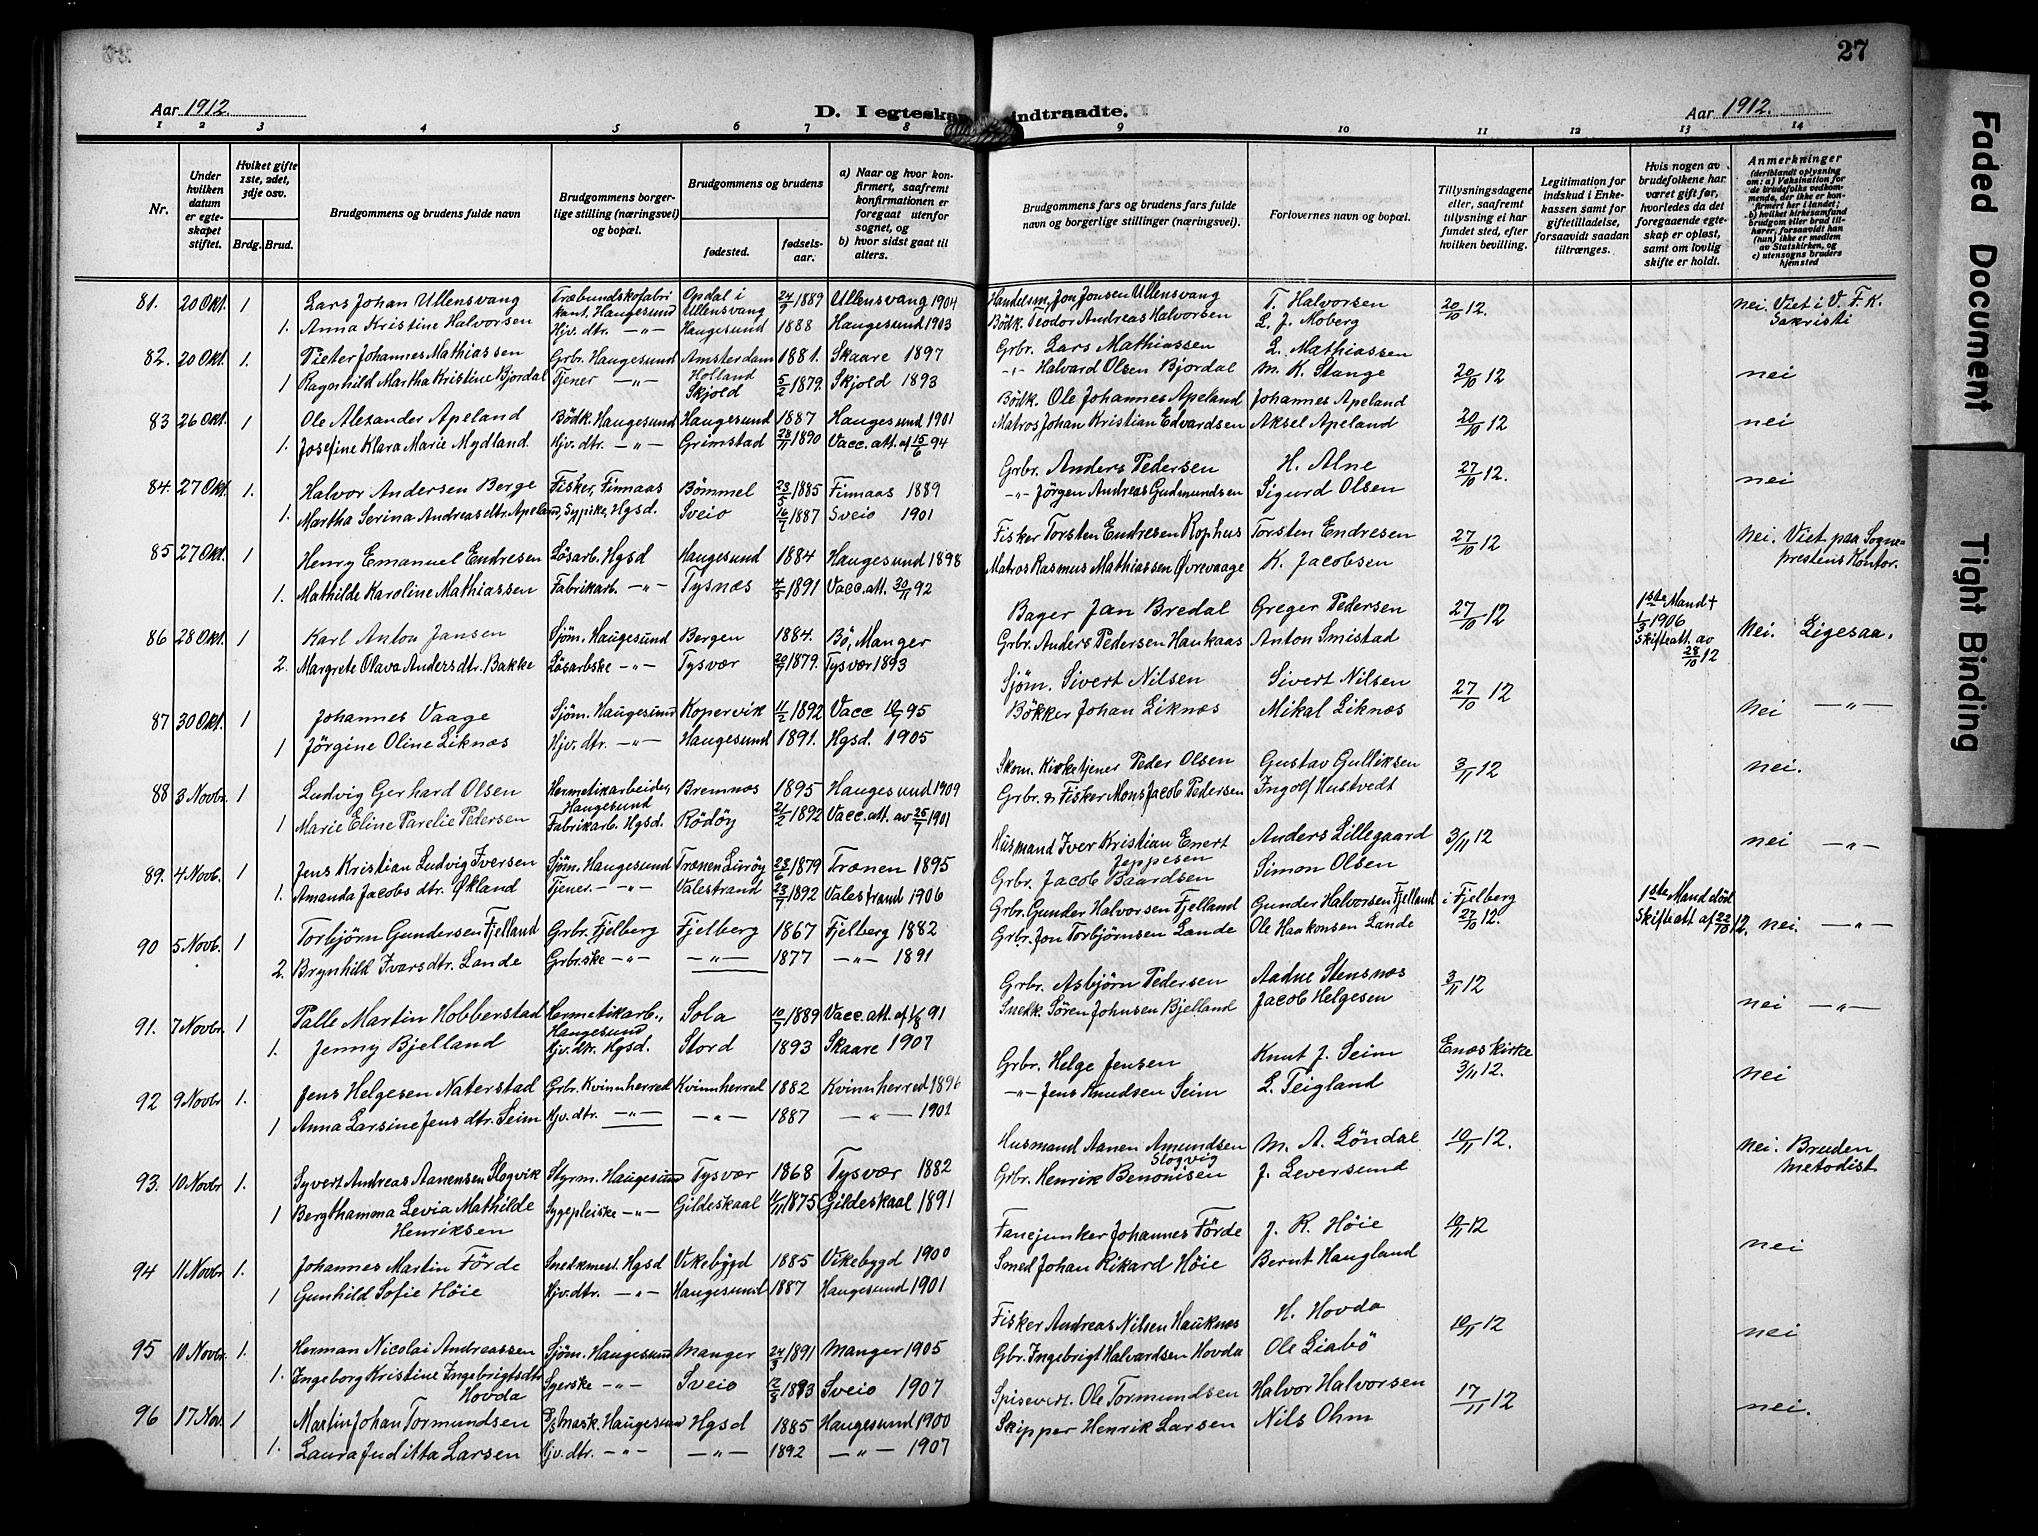 27
Aar 1912.
D. I egteskap indtraadte.
Aar 1912.
1 2 3 4 5 6 7 8 9 10 11 12 13 14
Nr.
Under hvilken datum er egteskapet stiftet.
Hviket gifte 1ste, 2det, 3dje osv.
Brdg. Brud.
Brudgommens og brudens fulde navn
Brudgommens borgerlige stilling (næringsvei) og bopæl.
Brudgommens og brudens
fødested.
fødselsaar.
a) Naar og hvor konfirmert, saafremt konfirmationen er foregaat utenfor sognet, og
b) hvor sidst gaat til alters.
Brudgommens fars og brudens fars fulde navn og borgerlige stillinger (næringsvei).
Forlovernes navn og bopæl.
Tillysningsdagene eller, saafremt tillysning ei har fundet sted, efter hvilken bevilling.
Legitimation for indskud i Enkekassen samt for giftetilladelse, forsaavidt saadan tiltrænges.
Hvis nogen av brudefolkene har været gift før, hvorledes da det foregaaende egteskap er opløst, samt om lovlig skifte er holdt.
Anmerkninger (deriblandt oplysning om: a) Vaksination for de brudefolks vedkommende, der ikke er konfirmert her i landet; b) hvilket kirkesamfund brudgom eller brud tilhører, forsaavidt han (hun) ikke er medlem av Statskirken, og c) utensogns bruders hjemsted
81. 20 Okt. 1 Lars Johan Ullensvang Træbundskofabrikant, Haugesund Opdal i Ullensvang 24/7 1889 Ullensvang 1904 Handelsm. Jon Jonsen Ullensvang T. Halvorsen 20/10 12. nei. Viet i V. F. K. Sakristi
1. Anna Kristine Halvorsen Hjv. dtr. —"— Haugesund 1888 Haugesund 1903 Bödk. Teodor Andreas Halvorsen L. J. Moberg
82. 20 Okt. 1. Pieter Johannes Mathiassen Grbr. Haugesund Amsterdam Holland 1881. Skaare 1897 Grbr. Lars Mathiassen L. Mathiassen 20/10 12 nei
1 Ragnhild Martha Kristine Bjordal Tjener —"— Skjold 5/2 1879. Skjold 1893 —"— Halvard Olsen Bjordal M. K. Stange
83 26 Okt. 1 Ole Alexander Apeland Bödk. Haugesund Haugesund 1887 Haugesund 1901 Bödk. Ole Johannes Apeland Johannes Apeland 20/10 12 nei
1. Josefine Klara Marie Mydland Hjv. dtr. —"— Grimstad 28/11 1890 Vacc. att. af 15/6 94 Matros Johan Kristian Edvardsen Aksel Apeland
84. 27 Okt. 1. Halvor Andersen Berge Fisker, Finnaas Bömmel 23/5 1885 Finnaas 1889 Grbr. Anders Pedersen H. Alne 27/10 12. nei
1. Martha Serina Andreasdtr. Apeland, Sypike, Hgsd. Sveio 1887 Sveio 1901 —"— Jörgen Andreas Gudmundsen Sigurd Olsen
85 27 Okt. 1 Henry Emanuel Endresen Lösarb. Hgsd Haugesund 1884 Haugesund 1898 Fisker Torsten Endresen Rophus Torsten Endresen 27/10 12 Nei. Viet paa Sogneprestens Kontor.
1. Mathilde Karoline Mathiassen Fabrikarb. —"— Tysnæs 4/5 1891 Vacc. att. 30/11 92 Matros Rasmus Mathiassen Øvrevaage K. Jacobsen
86 28 Okt. 1 Karl Anton Jansen Sjöm. Haugesund Bergen 1884. Bö, Manger Bager Jan Bredal Greger Pedersen 27/10 12 1ste Mand + 1/3 1906 Skifteatt. av 28/10 12 Nei. Ligesaa.
2. Margrete Olava Andersdtr. Bakke Lösarbske —"— Tysvær 20/7 1879. Tysvær 1893 Grbr. Anders Pedersen Haukaas Anton Smistad
87 30 Okt. 1 Johannes Vaage Sjöm. Haugesund Kopervik 11/2 1892 Vacc 95 Sjöm. Sivert Nilsen Sivert Nilsen 27/10 12 nei —"—
1 Jörgine Oline Liknæs Hjv. dtr. —"— Haugesund 1891. Hgsd. 1905 Bökker Johan Liknæs Mikal Liknæs
88 3 Novbr. 1 Ludvig Gerhard Olsen Hermetikarbeider, Haugesund Bremnæs 1895 Haugesund 1909 Skom. Kirketjener Peder Olsen Gustav Gulliksen 3/11 12 nei.
1 Marie Eline Parelie Pedersen Fabrikarb. Hgsd. Rödöy 21/2 1892 Vacc. att. av 26/7 1901 Grbr. & Fisker Mons Jacob Pedersen Ingolf Hustvedt
89. 4 Novb. 1 Jens Kristian Ludvig Iversen Sjöm. Haugesund Trænen Luröy 23/6 1879 Trænen 1895 Husmand Iver Kristian Enert Jeppesen Anders Lillegaard 3/11 12 nei —"—
1. Amanda Jacobs dtr. Økland Tjener. —"— Valestrand 23/7 1892 Valestrand 1906 Grbr. Jacob Baardsen Simon Olsen
90 5 Novb. 1 Torbjörn Gundersen Fjelland Grbr. Fjelberg Fjelberg 1867 Fjelberg 1882 Grbr. Gunder Halvorsen Fjelland Gunder Halvorsen Fjelland i Fjelberg 27/10 12. 1ste Mand död Skifteatt af 22/10 12. nei —"—
2. Brynhild Ivarsdtr. Lande Grbr.ske —"— —"— 1877 —"— 1891 Grbr. Jon Torbjörnsen Lande Ole Haakonsen Lande
91. 7 Novbr. 1 Palle Martin Hobberstad Hermetikarb., Haugesund Sola 10/7 1889 Vacc. att. af 1/8 91 Grbr. Asbjörn Pedersen Aadne Stensnæs 3/11 12 nei —"—
1. Jenny Bjelland Hjv. dtr. Hgsd. Stord 1893 Skaare 1907 Snedk. Sören Johnsen Bjelland Jacob Helgesen
92 9 Novbr 1. Jens Helgesen Naterstad Grbr. Kvinnherred Kvinnherred 1882 Kvinnherred 1896 Grbr. Helge Jensen Knut J. Seim Enæs kirke 3/11 12. nei
1 Anna Larsine Jens dtr. Seim Hjv. dtr. —"— —"— 1887 —"— 1901 —"— Jens Knudsen Seim L. Teigland
93. 10 Novbr 1. Syvert Andreas Aanensen Slogvik Styrm. Haugesund Tysvær 1868 Tysvær 1882 Husmand Aanen Amundsen Slogvig M. A. Löndal 10/11 12. nei. Bruden Metodist
1 Bergthamma Levia Mathilde Henriksen Sygepleiske —"— Gildeskaal 1875 Gildeskaal 1891 Grbr. Henrik Benonisen J. Leversund
94 11 Novbr 1. Johannes Martin Förde Snedkmest. Hgsd Vikebygd 1885 Vikebygd 1900 Fanejunker Johannes Förde J. R. Höie 10/11 12 nei
1 Gunhild Sofie Höie Hjv. dtr. —"— Haugesund 1887 Haugesund 1901 Smed Johan Rikard Höie Bernt Haugland
95 10 Novbr. 1. Herman Nicolai Andreassen Sjöm. Haugesund Manger 24/3 1891 Manger 1905 Fisker Andreas Nilsen Hauknes H. Hovda 10/11 12 nei
1. Ingeborg Kristine Ingebrigtsdtr Hovda Syerske —"— Sveio 12/8 1893 Sveio 1907 Gbr. Ingebrigt Halvardsen Hovda Ole Liabö
96 17 Nov. 1 Martin Johan Tormundsen D/s Mask. Haugesund Hgsd 1885 Haugesund 1900 Spisevert. Ole Tormundsen Halvor Halvorsen 17/11 12 nei.
1. Laura Juditta Larsen Hjv. dtr. —"— —"— 1892 —"— 1907 Skipper Henrik Larsen Nils Ohm
Faded Document
Tight Binding